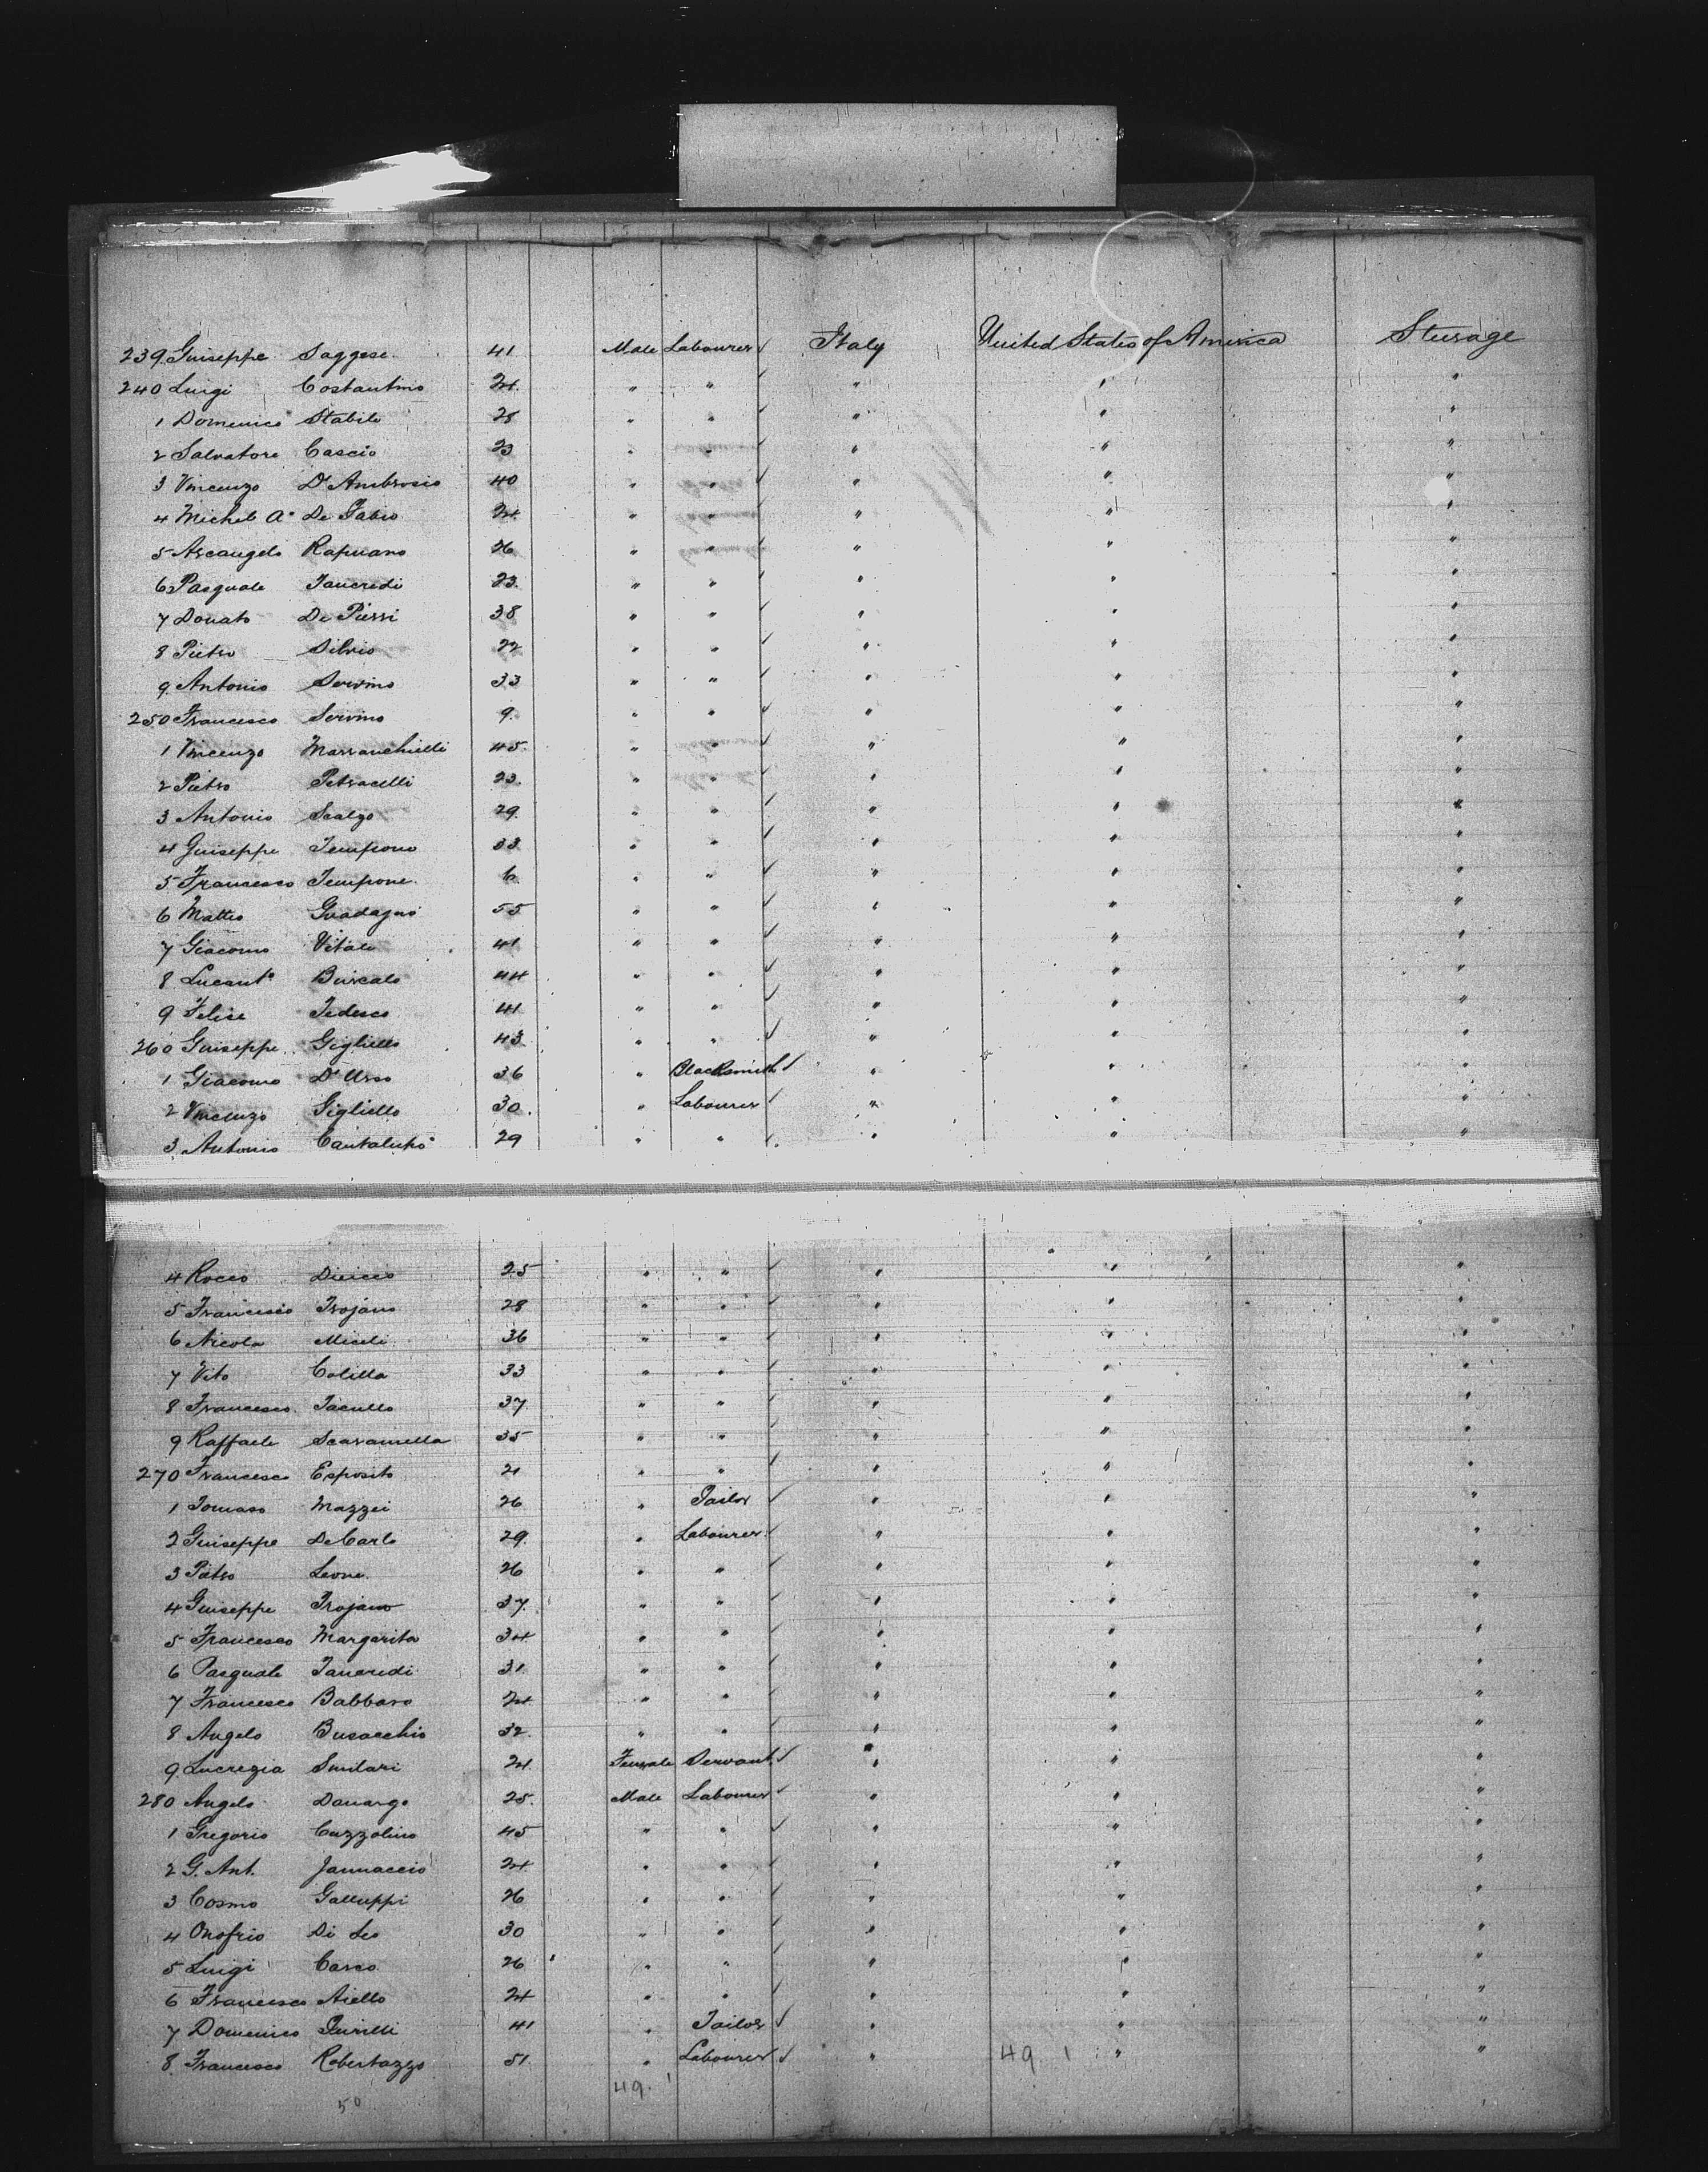 239 Guiseppe Saggese 41 Male Labourer ✓ Italy United States of America Steerage
240 Luigi Costantino 24 " " ✓ " " "
1 Domenico Stabile 28 " " ✓ " " "
2 Salvatore Cascio 23 " " ✓ " " "
3 Vincenzo D'Ambrosio 40 " " ✓ " " "
4 Michel A. De Fabio 24 " " ✓ " " "
5 Arcangelo Rapuano 26 " " ✓ " " "
6 Pasquale Tancredi 23 " " ✓ " " "
7 Donato De Pierri 38 " " ✓ " " "
8 Pietro Silvio 22 " " ✓ " " "
9 Antonio Servino 33 " " ✓ " " "
250 Francesco Servino 9 " " ✓ " " "
1 Vincenzo Marranchielli 45 " " ✓ " " "
2 Pietro Petracelli 23 " " ✓ " " "
3 Antonio Scalzo 29 " " ✓ " " "
4 Guiseppe Tempone 33 " " ✓ " " "
5 Francesco Tempone 6 " " ✓ " " "
6 Matteo Guadagno 55 " " ✓ " " "
7 Giacomo Vitale 41 " " ✓ " " "
8 Lucant° 44 " " ✓ " " "
9 Felice Tedesco 41 " " ✓ " " "
260 Guiseppe Gigliello 43 " " ✓ " " "
1 Giacomo D'Urso 36 " Blacksmith ✓ " " "
2 Vincenzo Gigliello 30 " Labourer ✓ " " "
3 Antonio Cantalupo 29 " " ✓ " " "
4 Rocco Dicicco 25 " " ✓ " " "
5 Francesco Trojano 28 " " ✓ " " "
6 Nicola Miceli 36 " " ✓ " " "
7 Vito Colilla 33 " " ✓ " " "
8 Francesco Iacullo 37 " " ✓ " " "
9 Raffaele Scaramella 35 " " ✓ " " "
270 Francesco Esposito 21 " " ✓ " " "
1 Tomaso Mazzei 26 " Tailor ✓ " " "
2 Guiseppe De Carlo 29 " Labourer ✓ " " "
3 Pietro Leone 26 " " ✓ " " "
4 Guiseppe Trojano 37 " " ✓ " " "
5 Francesco Margarita 34 " " ✓ " " "
6 Pasquale Tancredi 31 " " ✓ " " "
7 Francesco Babbaro 24 " " ✓ " " "
8 Angelo Busacchio 32 " " ✓ " " "
9 Lucrezia Smilari 24 Female Servant ✓ " " "
280 Angelo 25 Male Labourer ✓ " " "
1 Gregorio Cuzzolino 45 " " ✓ " " "
2 G. Ant. Jannaccio 24 " " ✓ " " "
3 Cosmo Galluppi 26 " " ✓ " " "
4 Onofrio Di Leo 30 " " ✓ " " "
5 Luigi Carco 26 " " ✓ " " "
6 Francesco Aiello 24 " " ✓ " " "
7 Domenico 41 " Tailor ✓ " " "
8 Francesco Robertazzo 51 " Labourer ✓ " 49 1 " "
50 49 1